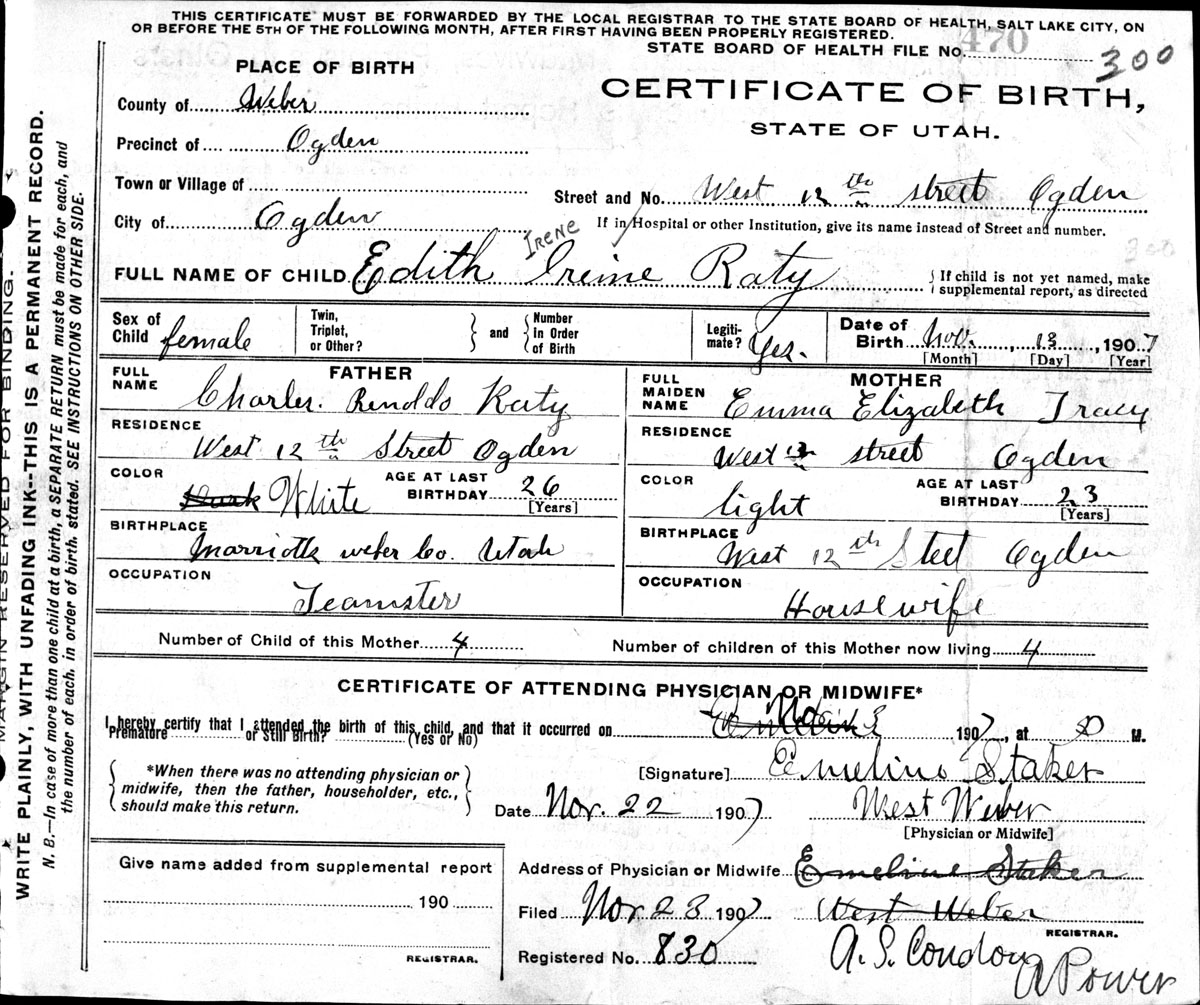 THIS CERTIFICATE MUST BE FORWARDED BY THE LOCAL REGISTRAR TO THE STATE BOARD OF HEALTH, SALT LAKE CITY, ON
OR BEFORE THE 5TH OF THE FOLLOWING MONTH, AFTER FIRST HAVING BEEN PROPERLY REGISTERED.
STATE BOARD OF HEALTH FILE No. 470
300
PLACE OF BIRTH
CERTIFICATE OF BIRTH,
STATE OF UTAH.
County of Weber
Precinct of Ogden
Town or Village of
Street and No. West 12th street Ogden
City of Ogden
If in Hospital or other Institution, give its name instead of Street and number.
300
Irene
FULL NAME OF CHILD Edith Ireine Raty
{If child is not yet named, make
supplemental report, as directed
Sex of Child female
Twin, Triplet, or Other? } and { Number in Order of Birth
Legiti-mate? Yes.
Date of Birth Nov. 13, 1907
[Month] [Day] [Year]
FATHER
FULL NAME Charles. Renoldo Raty
RESIDENCE West 12th Street Ogden
COLOR Dark White
AGE AT LAST BIRTHDAY 26
[Years]
BIRTHPLACE Marriotts weber Co. Utah
OCCUPATION Teamster
MOTHER
FULL MAIDEN NAME Emma Elizabeth Tracy
RESIDENCE West 12 street Ogden
COLOR light
AGE AT LAST BIRTHDAY 23
[Years]
BIRTHPLACE West 12th Steet Ogden
OCCUPATION Housewife
Number of Child of this Mother 4
Number of children of this Mother now living 4
CERTIFICATE OF ATTENDING PHYSICIAN OR MIDWIFE*
I hereby certify that I attended the birth of this child, and that it occurred on 1907, at M.
Premature or Still Birth? (Yes or No)
{*When there was no attending physician or
midwife, then the father, householder, etc.,
should make this return.}
[Signature] Emeline Staker
Date Nov. 22 1907 West Weber
[Physician or Midwife]
Give name added from supplemental report
190
REGISTRAR.
Address of Physician or Midwife Emeline Staker
Filed Nov 23 1907 West Weber
REGISTRAR.
Registered No. 830 A. S. Condon
A Power
MARGIN RESERVED FOR BINDING.
WRITE PLAINLY, WITH UNFADING INK--THIS IS A PERMANENT RECORD.
N. B.—In case of more than one child at a birth, a SEPARATE RETURN must be made for each, and
the number of each, in order of birth, stated. SEE INSTRUCTIONS ON OTHER SIDE.